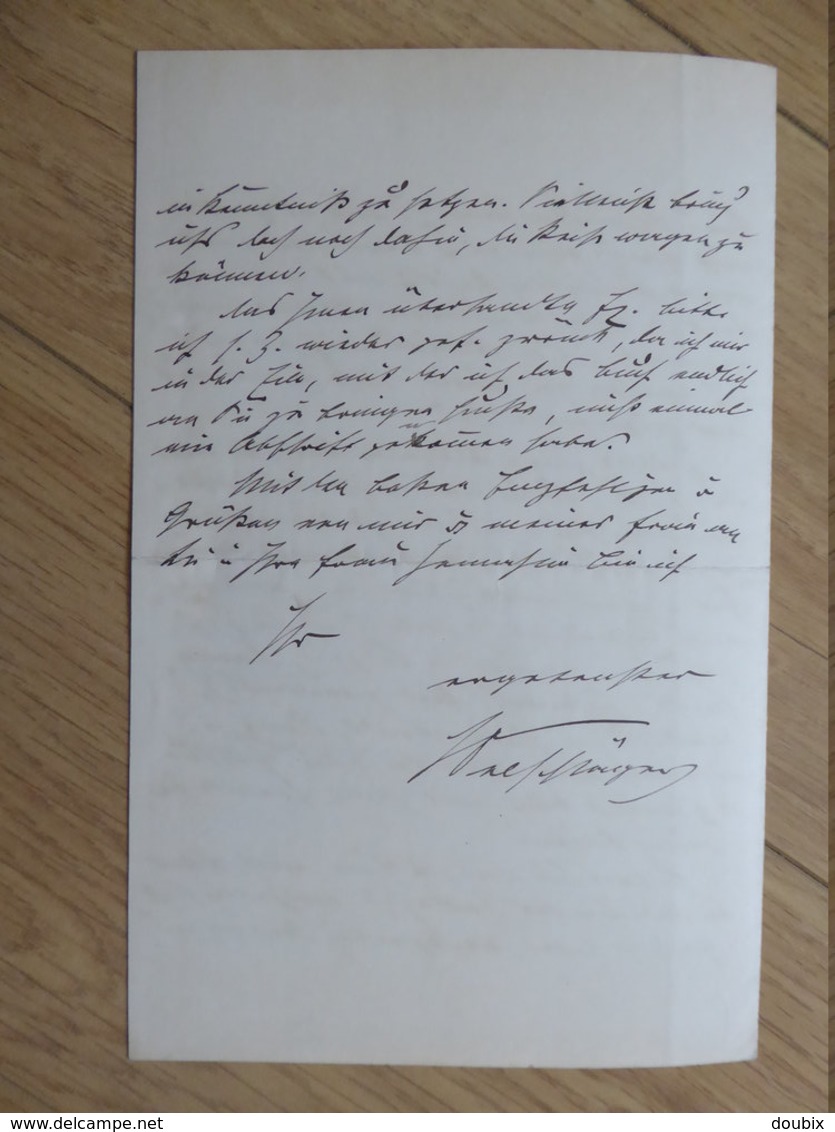 in Kenntniß zu setzen. Vielleicht
doch noch dafür, die Reise wagen zu
können.
Das Ihnen übersandte bitte
ich s. Z. wieder gef. zurück, da ich mir
in der Eile, mit der ich das endlich
an Sie zu bringen suchte, nicht einmal
ein Abschrift genommen habe.
Mit den besten Empfehlungen u
Grüßen von mir u meiner Frau an
Sie u Ihre Frau Gemahlin bin ich
Ihr
ergebenster
www.delcampe.net
doubix